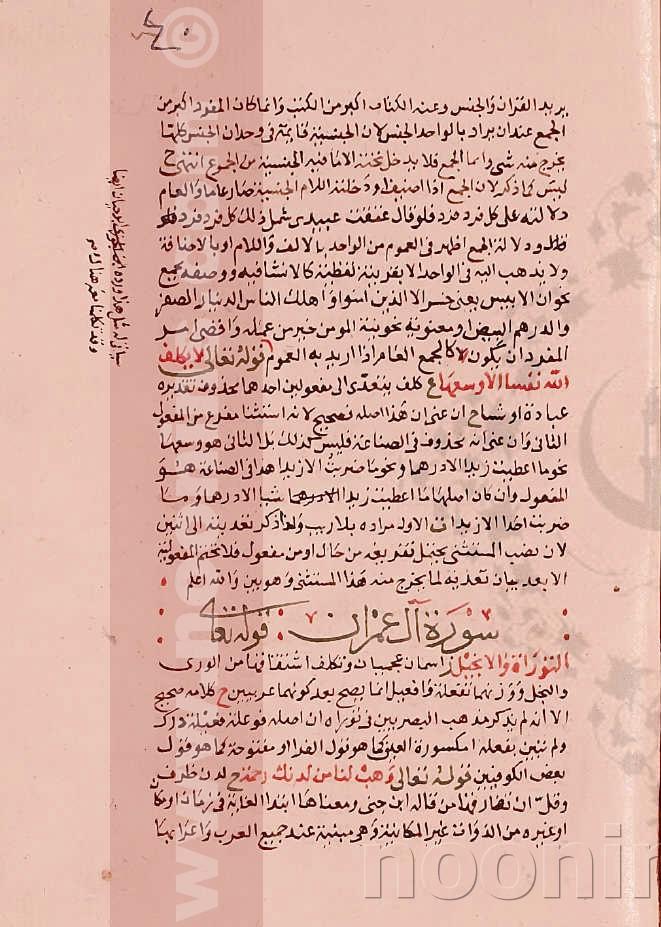 ٤٠
يريد القران والجنس وعنه الكتاب اكبر من الكتب وانما كان المفرد اكبر من
الجمع عندان يراد بالواحد الجنس لان الجنسية قايمة في وحدان الجنس كلها
يخرج منه شي واما الجمع فلا يدخل تحته الا ما فيه الجنسية من الجموع انتهى ح
ليس كما ذكر لان الجمع اذا اضيف او دخلته اللام الجنسية صار عاما والعام
دلالته على كل فرد فرد فلو قال عتقت عبيدي شمل ذلك كل فرد فرد
ودلالة الجمع اظهر في العموم من الواحد بالالف واللام او بالاضافة
ولا يذهب اليه في الواحد الا بقرينة لفظية كالاستثنا فيه ووصفه بجمع
نحو ان الانسان لفي خسر الا الذين امنوا واهلك الناس الدينار الصفر
والدرهم البيض او معنوية نحو نية المومن خير من عمله واقصى امر
المفرد ان يكون كالجمع العام اذا اريد به العموم قوله تعالى لا يكلف
الله نفسا الا وسعها ع كلف يتعدى الى مفعولين احدهما محذوف تقديره
عبادة او شيا ح ان عنى ان هذا اصله فصحيح لانه استثنا مفرغ من المفعول
الثاني وان عنى انه محذوف في الصناعة فليس كذلك بل الثاني هو وسعها
نحو ما اعطيت زيدا الا درهما ونحو ما ضربت الا زيدا هذا في الصناعة هو
المفعول وان كان اصلها ما اعطيت زيدا شيا الا درهما وما
ضربت احدا الا زيدا الاول مراده بلا ريب ولذا ذكر تعديته الى اثنين
لان نصب المستثنى يحتمل تفريغه من حال او من مفعول فلا تحتم المفعولية
الا بعد بيان تعديه لما يخرج منه هذا المستثنى وهو بين والله اعلم
سورة ال عمران قوله تعالى
التوراة والانجيل ز اسمان عجميان وتكلف اشتقاقهما من الورى
والنجل ووزنهما تفعلة وافعيل انما يصح بعد كونهما عربيين ح كلامه صحيح
الا انه لم يذكر مذهب البصريين في توراه ان اصله فوعلة ففيه درك
ولم تبين تفعله امكسورة العين كما هو قول الفرا او مفتوحة كما هو قول
بعض الكوفيين قوله تعالى وهب لنا من لدنك رحمة ح لدن ظرف
وقل ان تفارقها من قاله ابن جني ومعناها ابتدا الغاية في زمان او مكان
او غيره من الذوات غير المكانية وهي مبنية عند جميع العرب واعرابها
وقد تكلمنا معه هناك